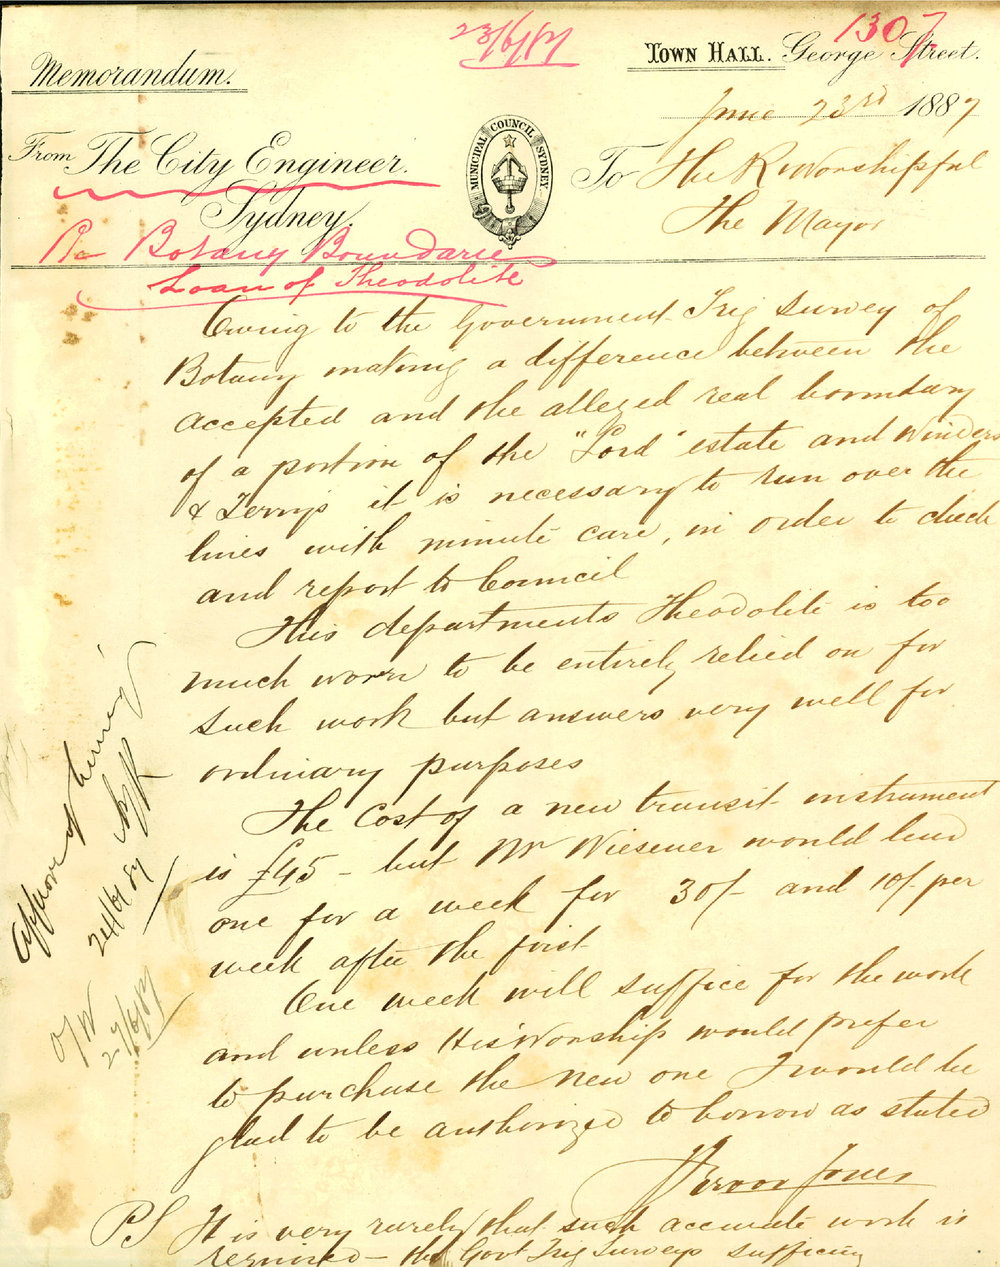 23/6/87
1307
Memorandum.
TOWN HALL. George Street.
June 23rd 1887
From The City Engineer.
Sydney.
MUNICIPAL COUNCIL SYDNEY
To The Rt Worshipful
The Mayor
Re Botany Boundarie
Loan of Theodolite
Owing to the Government Trig Survey of
Botany making a difference between the
accepted and the alleged real boundary
of a portion of the "Lord" estate and Winders
& Terrys it is necessary to run over the
lines with minute care, in order to check
and report to Council
This departments Theodolite is too
much worn to be entirely relied on for
such work but answers very well for
ordinary purposes
The Cost of a new transit instrument
is £45 - but Mr Wiesener would lend
one for a week for 30/- and 10/- per
week after the first
One week will suffice for the work
and unless His Worship would prefer
to purchase the new one I would be
glad to be authorized to borrow as stated
Jones
PS It is very rarely that such accurate work is
required - the Govt Trig Surveys sufficing
Approve of hiring
24/6/87
27/6/87